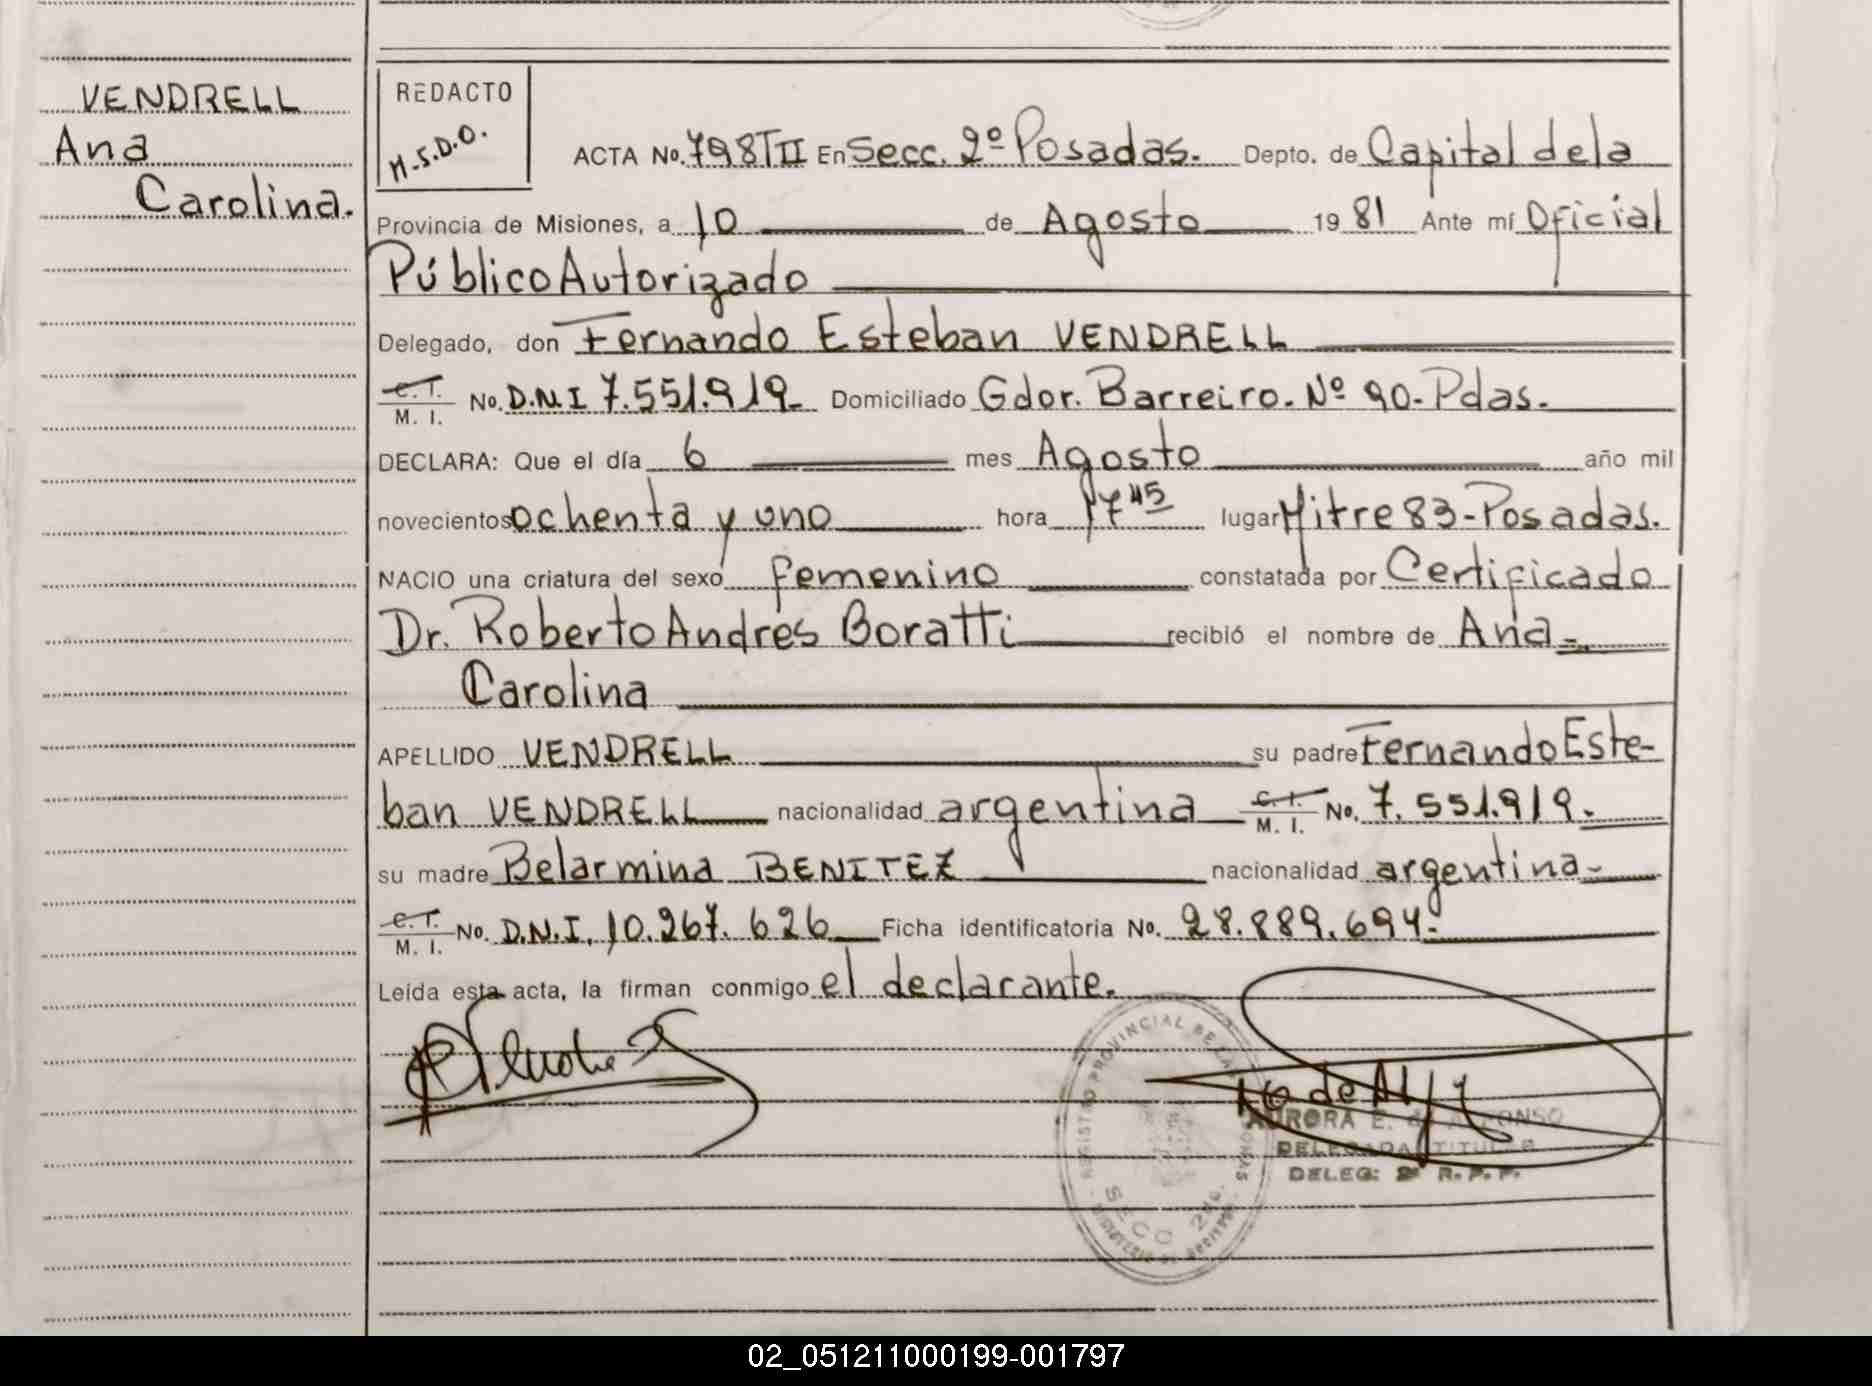 VENDRELL
Ana
Carolina.
REDACTO
M-S.D.O.
ACTA No. 798TII En Secc. 2º Posadas. Depto. de Capital de la
Provincia de Misiones, a 10 de Agosto 1981 Ante mí Oficial
Público Autorizado
Delegado, don Fernando Esteban VENDRELL
C. I. M. I. No. D.N.I 7.551.919- Domiciliado Gdor. Barreiro. Nº 90-Pdas.
DECLARA: Que el día 6 mes Agosto año mil
novecientos ochenta y uno hora 17 45 lugar Mitre 83-Posadas.
NACIO una criatura del sexo femenino constatada por Certificado
Dr. Roberto Andrés Boratti recibió el nombre de Ana-
Carolina
APELLIDO VENDRELL su padre Fernando Este-
ban VENDRELL nacionalidad argentina C. I. M. I. No. 7.551.919.
su madre Belarmina BENITEZ nacionalidad argentina-
C. I. M. I. No. D.N.I. 10.267.626 Ficha identificatoria No. 28.889.694.
Leída esta acta, la firman conmigo el declarante.
REGISTRO PROVINCIAL DE LAS PERSONAS
SECC 2da.
AURORA E. de ALFONSO
DELEGADA TITULAR
DELEG: 2ª R. P. P.
02_051211000199-001797